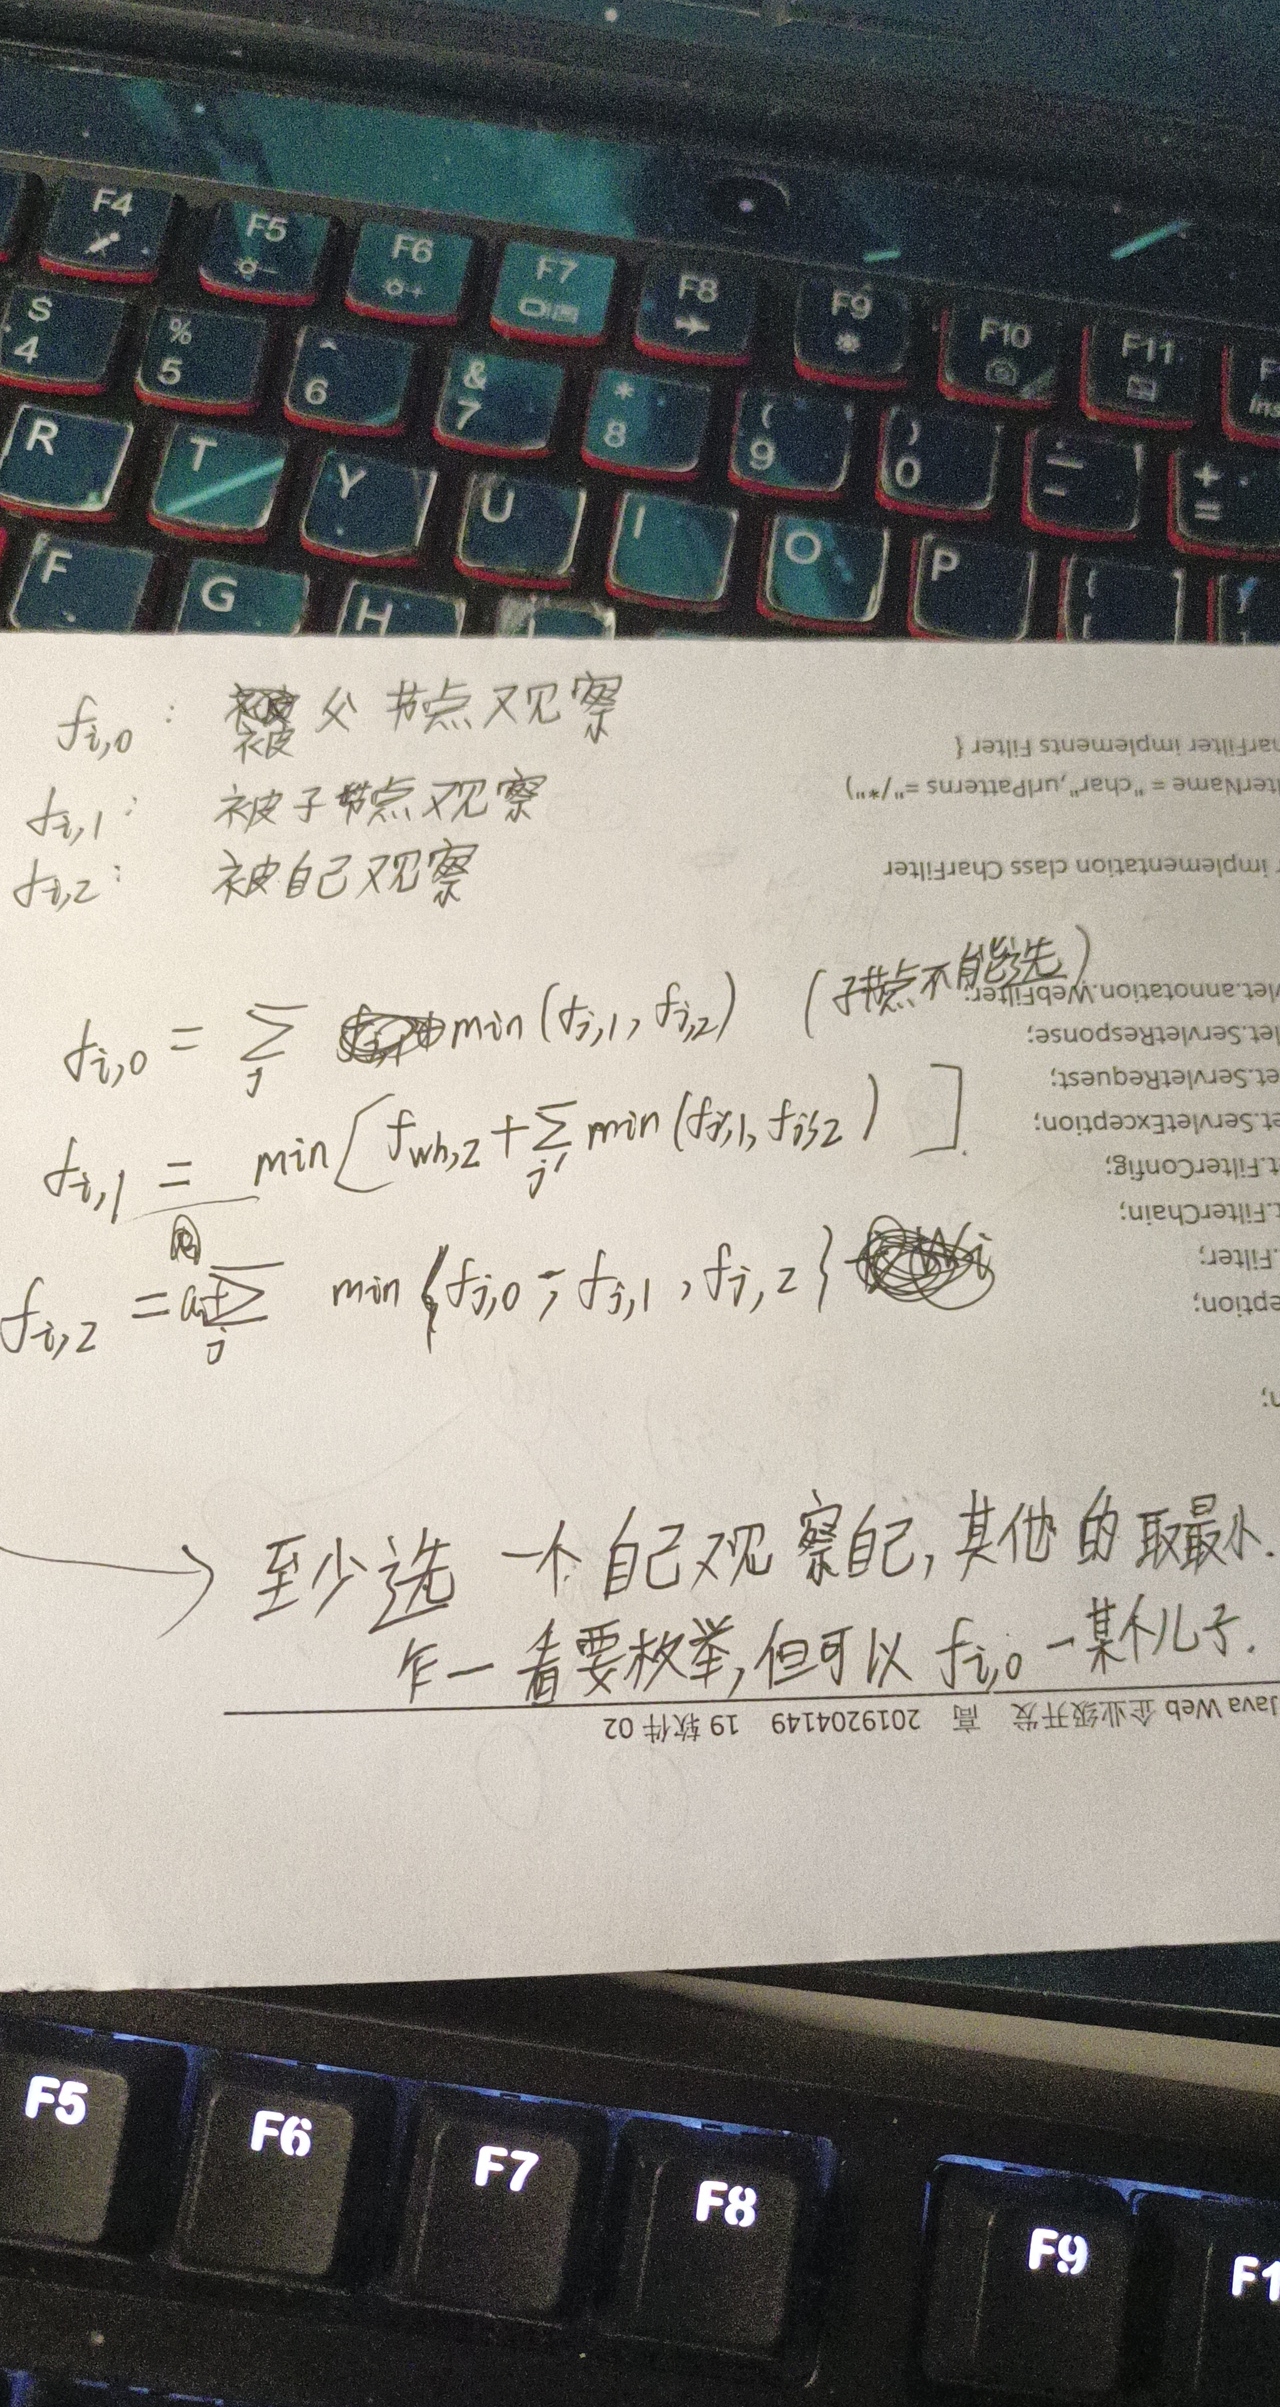 F4 F5 F6 F7 F8 F9 F10 F11
4 % 5 ^ 6 & 7 * 8 ( 9 ) 0 - + =
R T Y U I O P
F G H
f i,0 : 被父节点观察
f i,1 : 被子节点观察
f i,2 : 被自己观察
f i,0 = Σ j min (f j,1, f j,2) (子节点不能选)
f i,1 = min [ f wh,2 + Σ j' min (f j',1, f j',2) ].
f i,2 = a i + Σ j min { f j,0, f j,1, f j,2 }
→ 至少选一个自己观察自己, 其他的取最小.
乍一看要枚举, 但可以 f i,0 - 某个儿子.
Java Web 企业级开发 高 2019204149 19 软件 02
ption;
Filter;
.FilterChain;
t.FilterConfig;
et.ServletException;
et.ServletRequest;
let.ServletResponse;
let.annotation.WebFilter;
implementation class CharFilter
lterName = "char",urlPatterns ="/*")
harFilter implements Filter {
F5 F6 F7 F8 F9